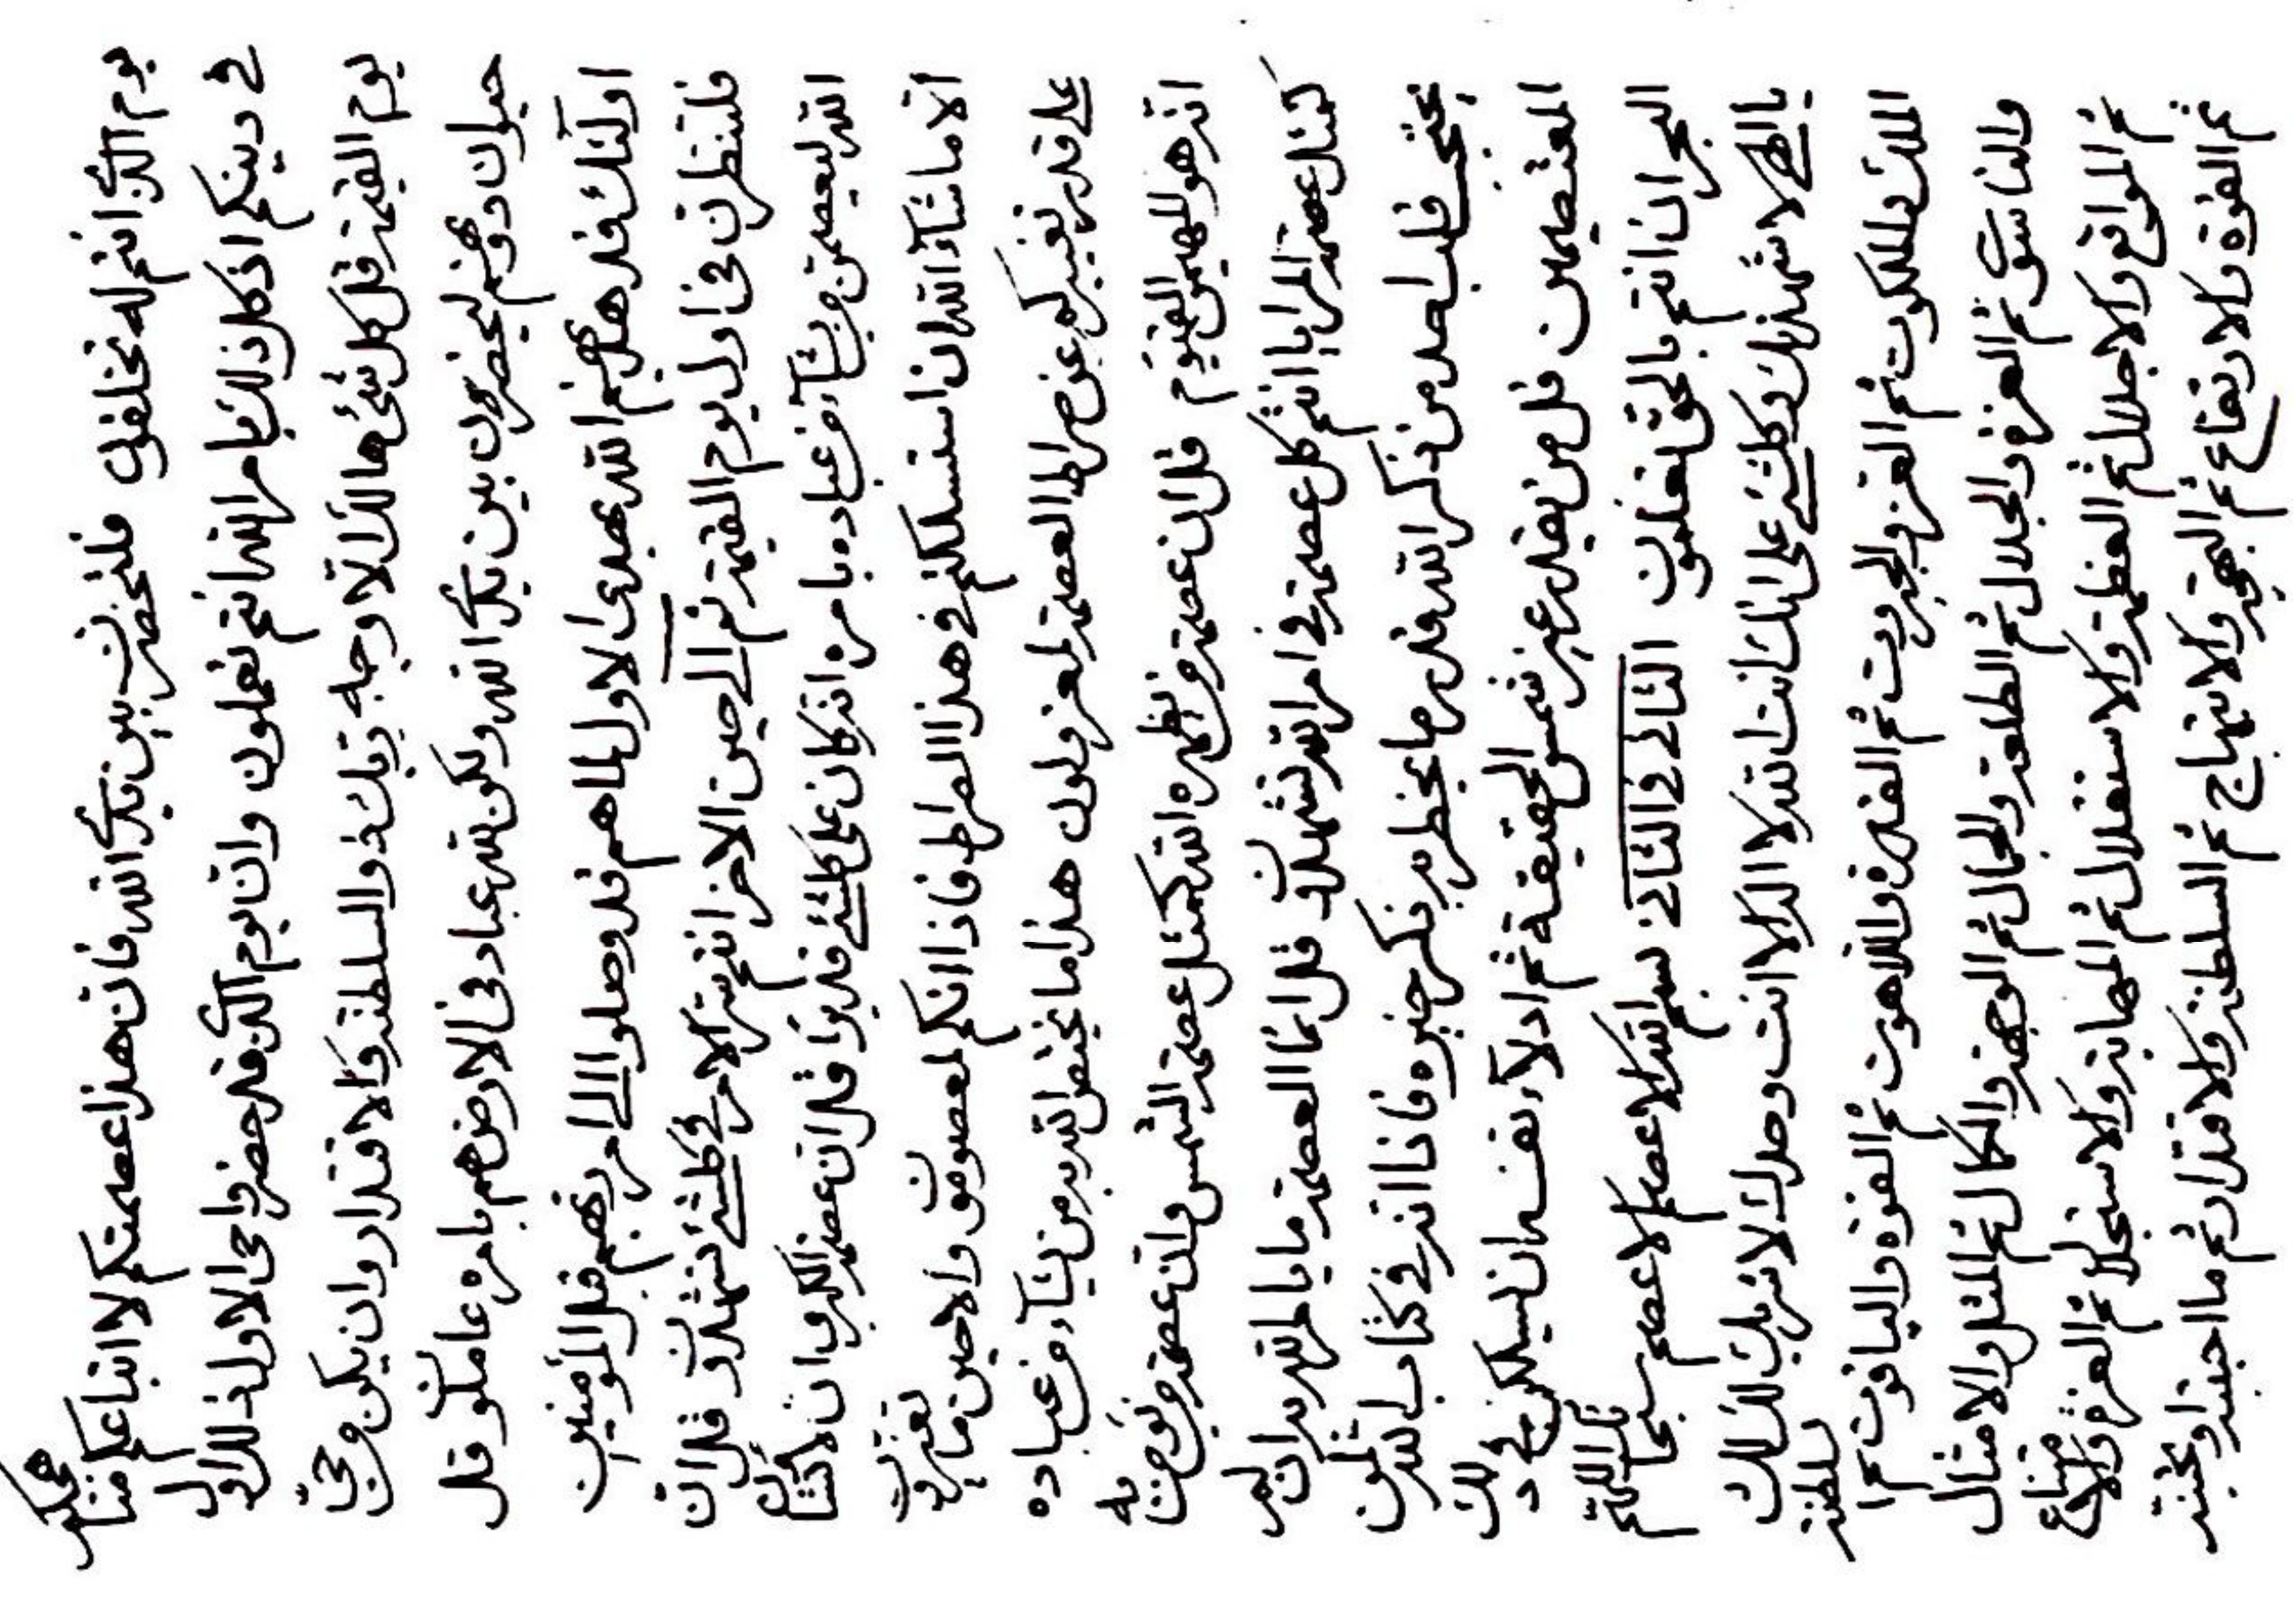 يوم الذي انتم له تخلقون فلتحضرن بين يدي الله فان هذا عصمتكم لا اتباعكم مننا
في دينكم اذ كل ذلك بامر الله انتم تعملون وان يوم الذي قد حضر واحي الاول ذلك الاول
يوم القيمة قل كل شئ هالك الا وجه ربك ذو السلطنة والاقتدار وان يكن من حي
حيوان دونهم ليحضرون بين يدي الله ولكن لله عباد في الارض هم بامره عاملون قل
اولئك قد هديهم الله بهدى الاول لما هم قد وصلوا الى امر ربهم قبل المؤمنين
فلتنظرن في اول يوم القيمة ثم الى حين الاخر انتم سر الامر في كلشئ تشهدون قل ان
الله ليعصمن من يشاء من عباده بامره انه كان على كلشئ قديرا قل ان عصمة الكبرى ان لا تشاء
الا ما شاء الله ان استسلكتم في هذا الصراط فاذا انكم لمعصومون والا حين ما
على قدر تغييركم عن صراط العصمة لمعزولون هذا ما يختص الله به من يشاء من عباده
انه هو المهيمن القيوم قل ان عصمة من يظهره الله كمثل عصمة الشمس وان عصمة من يؤمن به
كمثل عصمة المرايا انتم كل عصمة في امر الله تشهدون قل انما العصمة ما يا امر الله به ان لم
يحتجب قلب احد من ذكر الله قدر ما يخطر به ذكر خيره فاذا انه في كتاب الله لمن
المعتصمين قل من يقدر عير شمس الحقيقة ثم ادلاء نفسه ان يسلكن في ذلك
البحر ان انتم بالحق تعلمون الثاني في الثاني بسم الله الاعصم الاعصم سبحانك اللهم
يا الهي لاشهدنك وكلشئ على انك انت الله لا اله الا انت وحدك لا شريك لك لك
الملك والملكوت ثم العز والجبروت ثم القدرة واللاهوت ثم القوة والياقوت ثم السلطنة
والناسوت ثم العزة والجلال ثم الطلعة والجمال ثم الوجهة والكمال ثم المثل والامثال
ثم المواقع والاجلال ثم العظمة والاستقلال ثم المهابة والاستجلال ثم العزة والامتناع
ثم القوة والارتفاع ثم البهجة والابتهاج ثم السلطنة والاقتدار ثم ما احببته او تحبنه